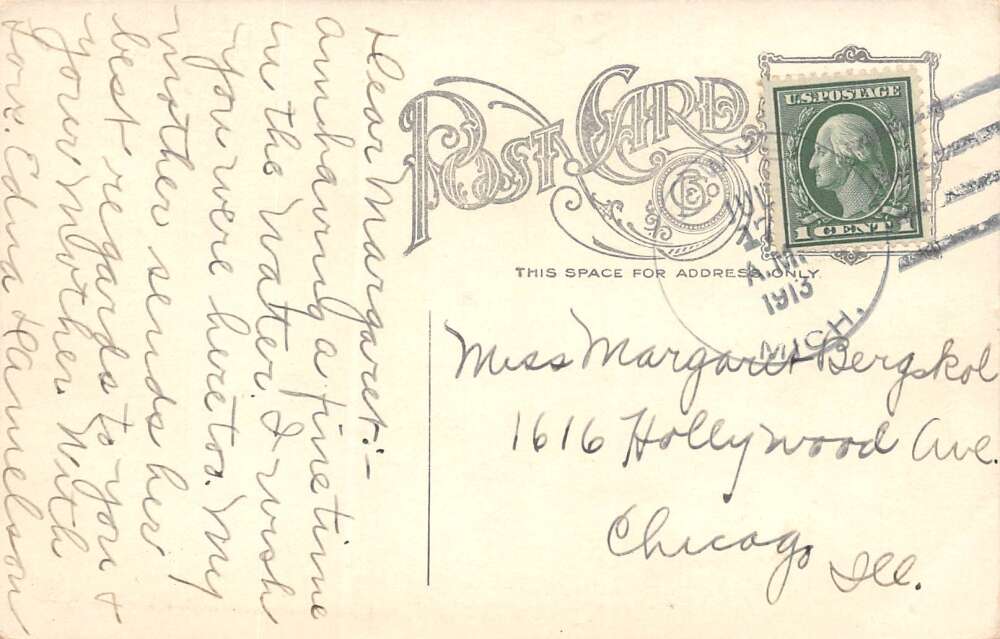 Dear Margaret:-
am having a fine time
in the water. I wish
you were here too. My
mother sends her
best regards to you +
your Mother. With
love. Edna Danielson
POST CARD
U.S. POSTAGE
1 CENT 1
A.M.
1913
MICH.
THIS SPACE FOR ADDRESS ONLY.
Miss Margaret Bergskol
1616 Hollywood Ave.
Chicago
Ill.